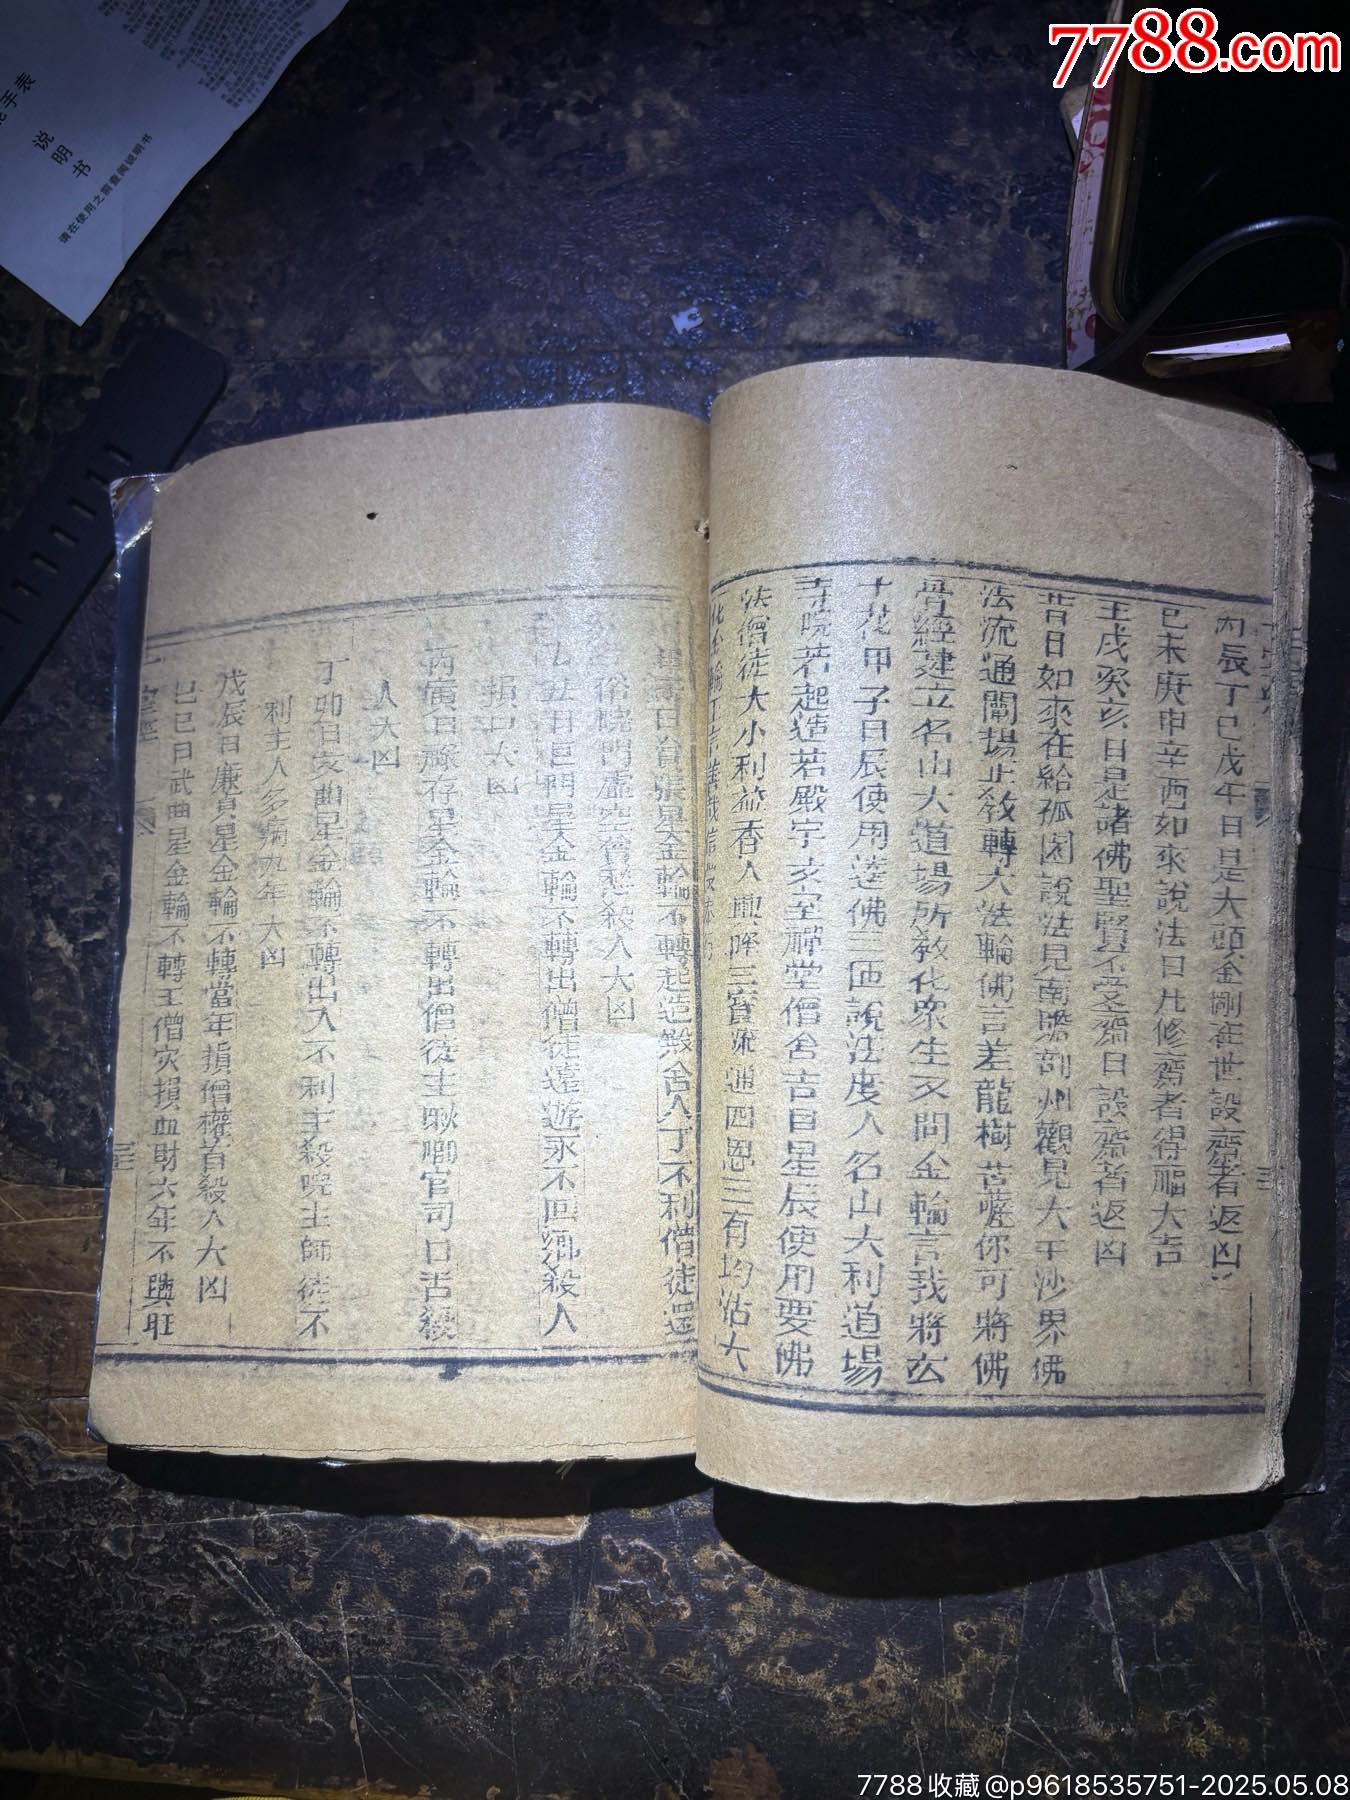 7788.com
说明书
请在使用之前查阅说明书
丙辰丁巳戊午日是大頭金剛在世設齋者返凶
己未庚申辛酉如來說法日凡修齋者得福大吉
壬戌癸亥日是諸佛聖賢不受齋日設齋者返凶
昔日如來在給孤園說法見南贍部州觀見大千沙界佛
法流通闡揚此教轉大法輪佛言差龍樹菩薩你可將佛
經建立名山大道場所教化眾生又問金輪言我將玄
十花甲子日辰使用差佛三匝說法度人名山大利道場
寺院若起造若殿宇亥室禪堂僧舍吉目星辰使用要佛
法僧徒大小利益香人興旺三寶流通四恩三有均沾大
日台張星金輪不轉起造殿舍人丁不利僧徒還
俗院門虛空舊愁殺人大凶
乙丑日巨門星金輪不轉出僧徒遠遊永不回鄉殺人
損口大凶
丙寅日祿存星金輪不轉出僧徒主啾唧官司口舌殺
人大凶
丁卯日文曲星金輪不轉出入不利主殺院主師徒不
利主人多病九年大凶
戊辰日廉貞星金輪不轉當年損僧權首殺人大凶
己巳日武曲星金輪不轉工僧灾損血財六年不興旺
7788收藏@p9618535751-2025.05.08